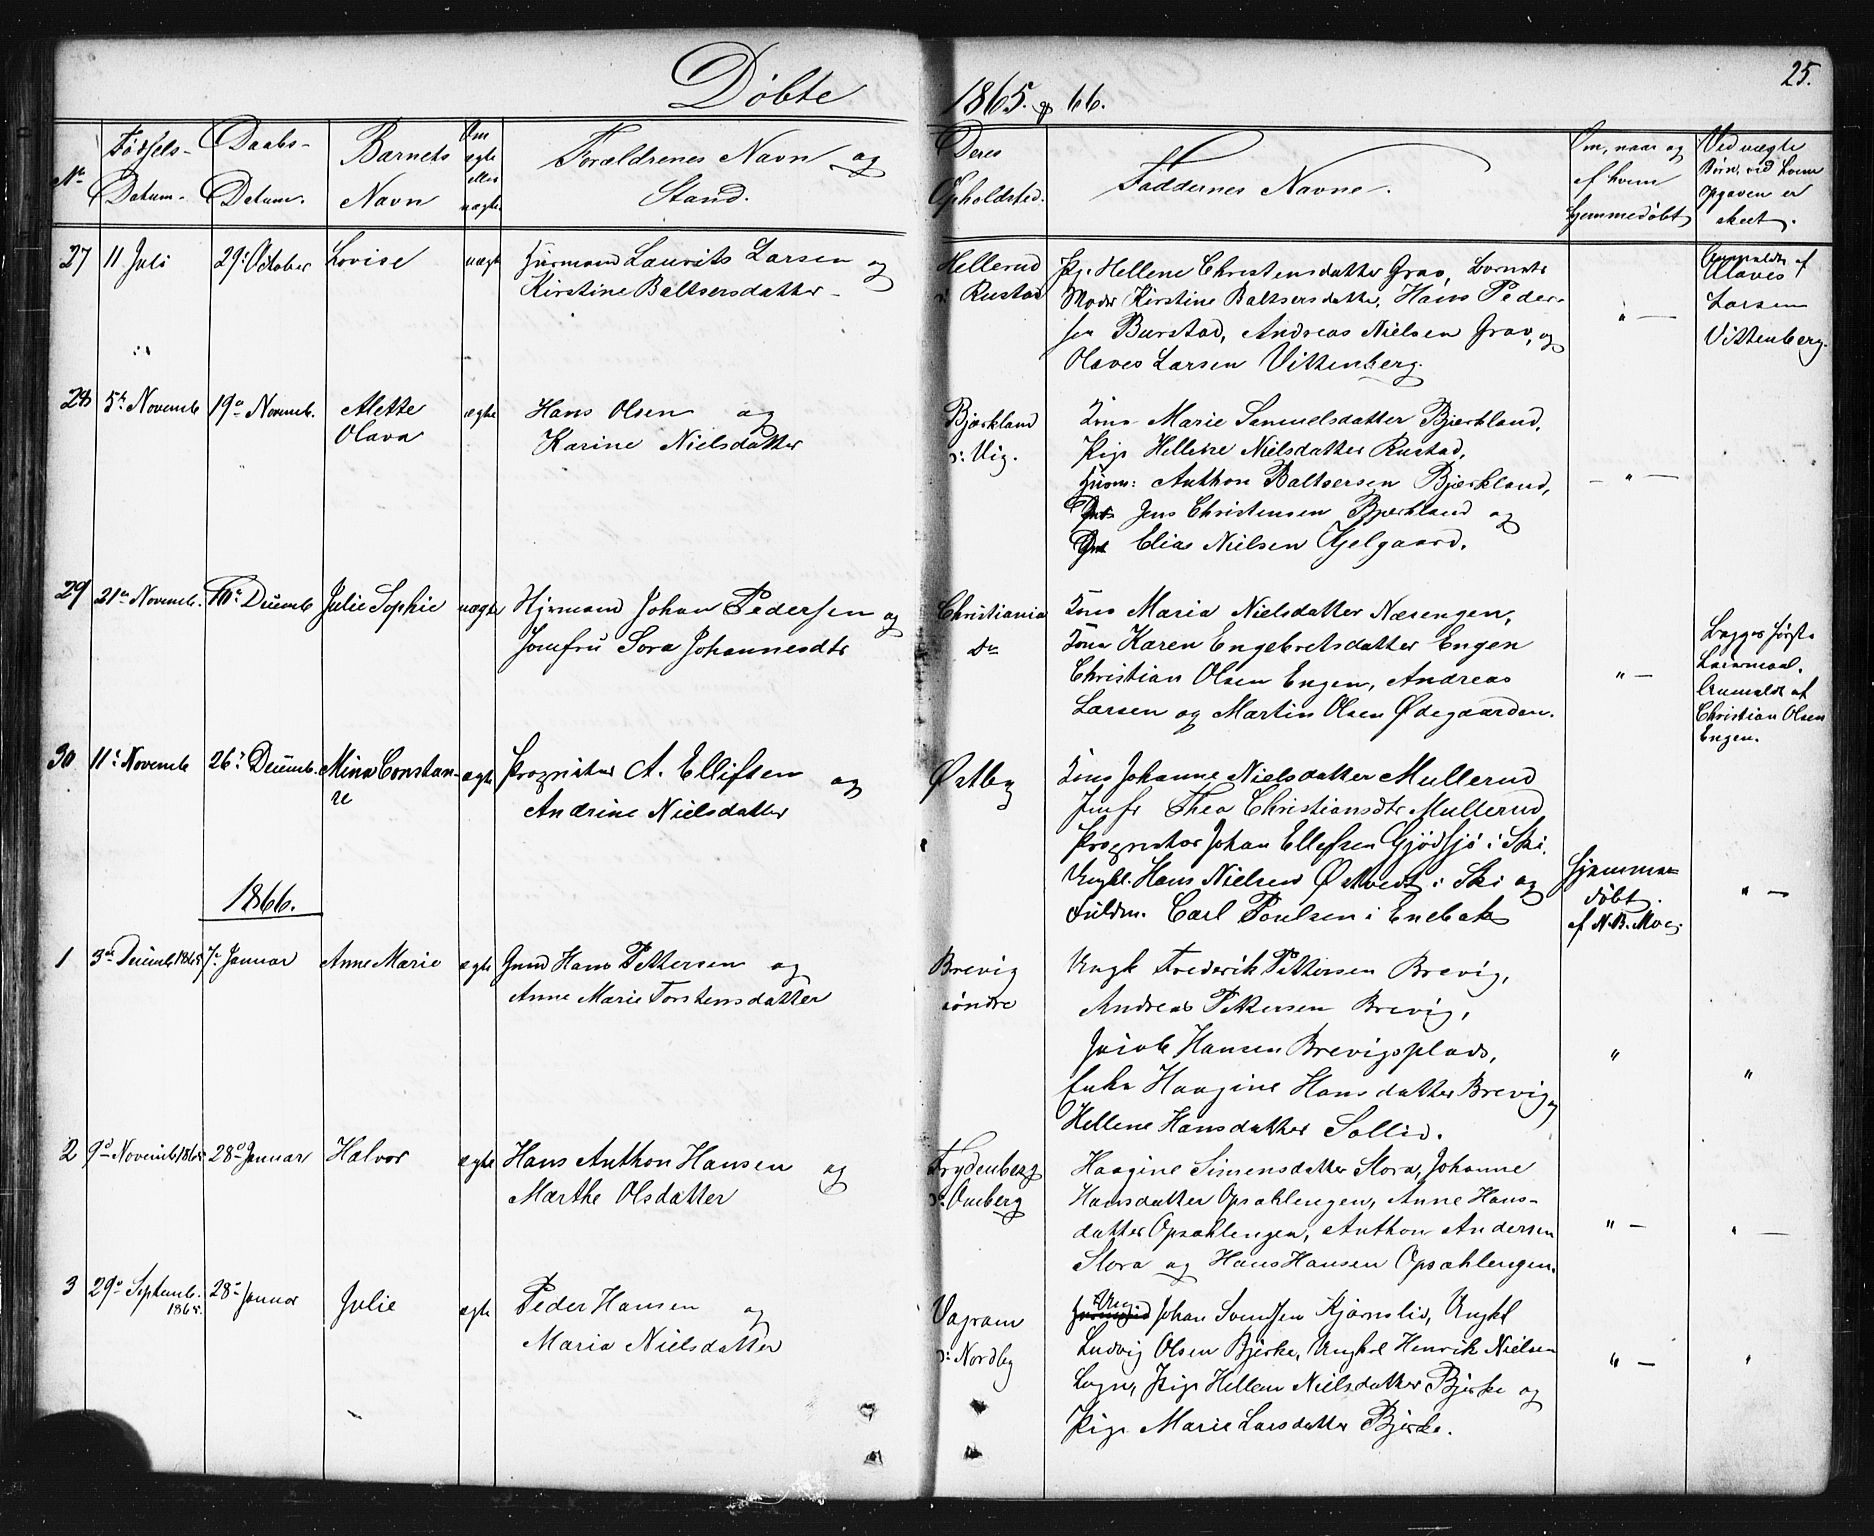 Døbte 1865. og 66. 25.
No Fødsels-Datum. Daabs-Datum. Barnets Navn Om ægte eller uægte. Forældrenes Navn og Stand. Deres Opholdsted. Faddernes Navne. Om, naar og af hvem hjemmedøbt Ved uægte Børn, ved hvem Opgaven er skeet.
27 11 Juli 29de October Lovise uægte Huusmand Laurits Larsen og
Kirstine Baltsersdatter
Hellerud
v: Rustad
Pige Hellene Christensdatter Grav, Barnets
Moder Kirstine Baltsersdatter, Hans Peder-
sen Burstad, Andreas Nielsen Grav, og
Olaves Larsen Vittenberg.
"
Anmeldt af
Olaves
Larsen
Vittenberg.
28 5te Novemb 19de Novemb. Alette
Olava
ægte Hans Olsen og
Karine Nielsdatter
Bjerkland
v: Vig.
Kone Marie Samuelsdatter Bjerkland,
Pige Hellene Nielsdatter Rustad,
Huusm: Anthon Baltsersen Bjerkland,
Jens Christensen Bjerkland og
Elias Nielsen Kjelgaard.
"
29 21de Novemb. 10de Decemb Julie Sophie uægte Hjrmand Johan Pedersen og
Jomfru Sora Johannesdtr
Christiania
Do
Kone Maria Nielsdatter Næsengen,
Kone Karen Engebretsdatter Engen
Christian Olsen Engen, Andreas
Larsen og Martin Olsen Ødegaarden.
"
Begges første
Leiermaal.
Anmeldt af
Christian Olsen
Engen.
30 11te Novemb 26de Decemb. Mina Constan-
ze
ægte Proprietær A. Ellifsen og
Andrine Nielsdatter
Østby
Kone Johanne Nielsdatter Mullerud
Jmfr Thea Christiansdtr Mullerud
Proprietær Johan Ellefsen Gjødsjø i Ski.
Ungk. Hans Nielsen Østvedt i Ski og
Fuldm. Carl Poulsen i Enebak
Hjemme-
døbt.
af N. B. Moe.
"
1866.
1 3die Decemb 1865 7de Januar Anne Marie ægte Grmd Hans Pettersen og
Anne Marie Torstensdatter
Brevig
søndre
Ungk Frederik Pettersen Brevig,
Andreas Pettersen Brevig,
Jacob Hansen Brevigsplads,
Enke Haagine Hansdatter Brevig og
Hellene Hansdatter Sollid.
" "
2 9de Novemb 1865 28de Januar Halvor ægte Hans Anthon Hansen og
Marthe Olsdatter
Frydenberg
v: Omberg
Haagine Simensdatter Slora, Johanne
Hansdatter Opsahlengen, Anne Hans-
datter Opsahlengen, Anthon Andersen
Slora og Hans Hansen Opsahlengen.
" "
3 29de Septemb.
1865.
28de Januar Julie ægte Peder Hansen og
Maria Nielsdatter
Vagram
v: Nordby
Ung Johan Svendsen Kjærnslid, Ungkl
Ludvig Olsen Bjerke, Ungkl Henrik Nielsen
Pige Hellene Nielsdatter Bjerke og
Pige Marie Larsdatter Bjerke.
" "